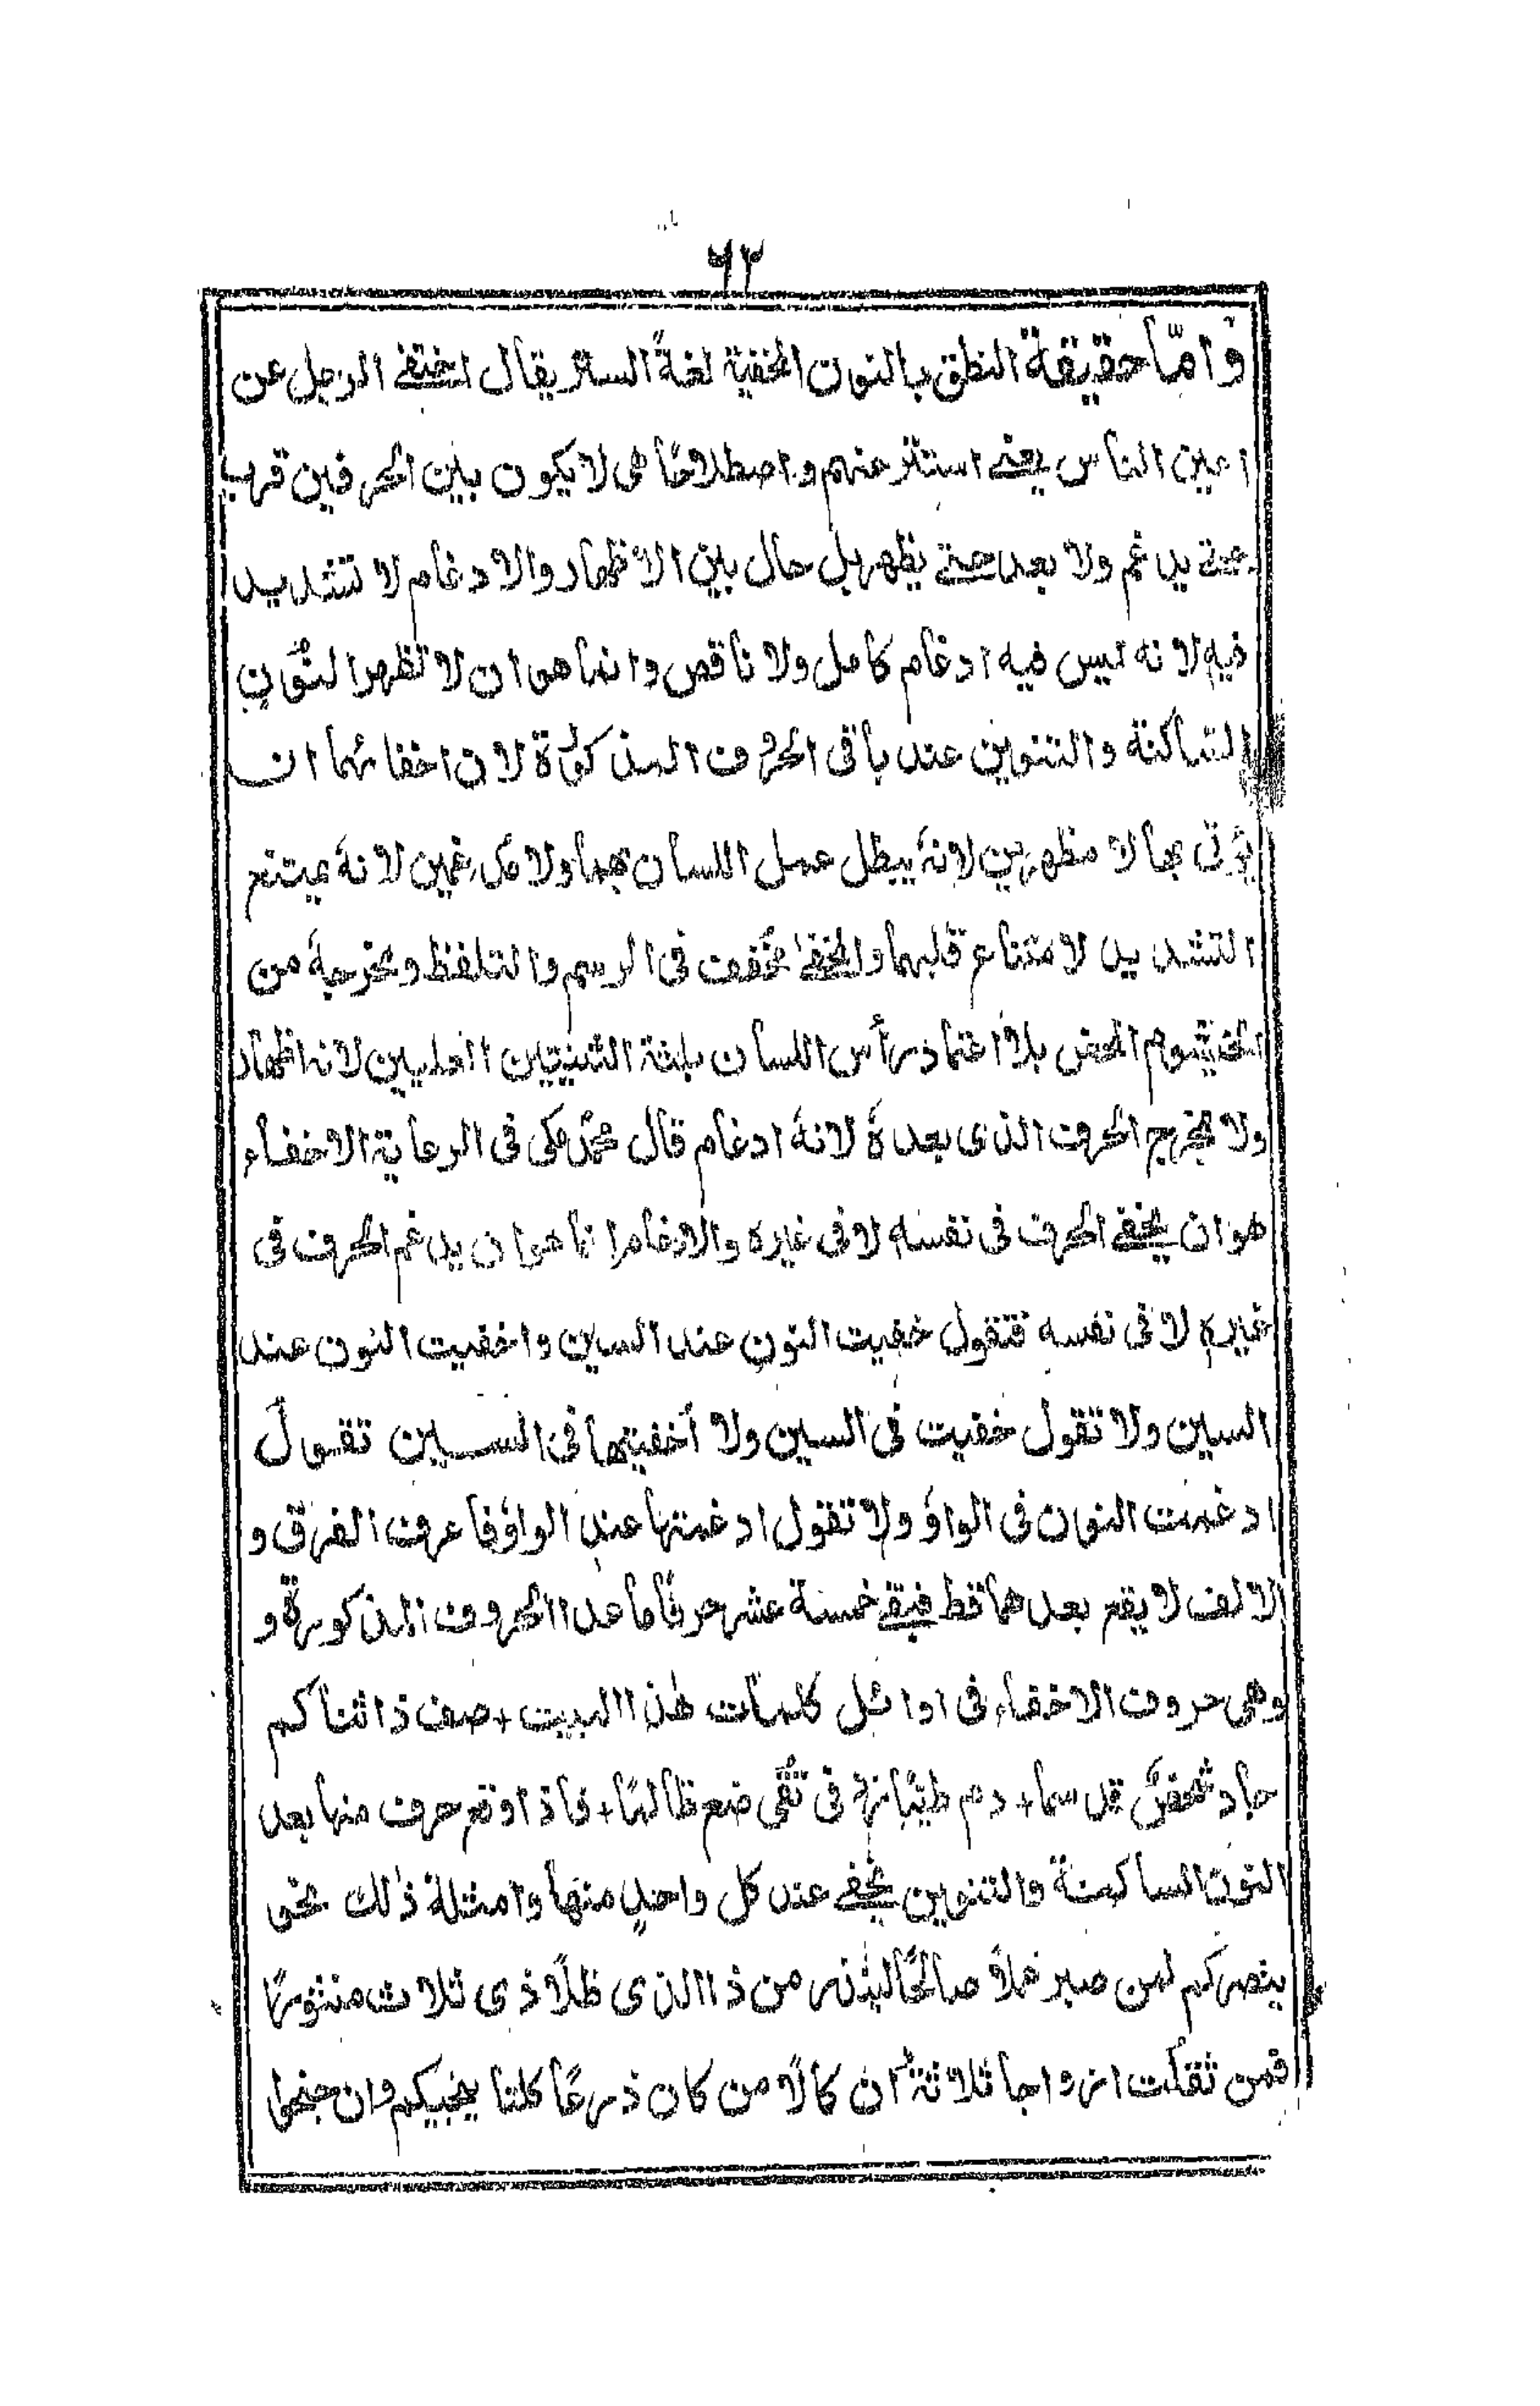 ٦٢
وامّا حقيقة النطق بالنون المخفية لغةً الستر يقال اختفے الرجل عن
اعين الناس يعنے استتر عنهم واصطلاحًا هى لا يكون بين الحرفين قرب
حتے يدغم ولا بعد حتے يظهر بل حال بين الاظهار والادغام لا تشديد
فيه لانه ليس فيه ادغام كامل ولا ناقص وانما هو ان لا تظهر النون
الساكنة والتنوين عند باقى الحروف المذكورة لان اخفائهما ان
يؤتى بهما لا مظهرين لانه يبطل عمل اللسان بهما ولا مدغمين لانه يمتنع
التشديد لامتناع قلبهما والمخفے مخفف فى الرسم والتلفظ ومخرجه من
الخيشوم المحض بلا اعتماد رأس اللسان بلثة الثنيتين العليين لانه اظهار
ولا بمخرج الحرف الذى بعده لانه ادغام قال محمد مكى فى الرعاية الاخفاء
هو ان يخفے الحرف فى نفسه لا فى غيره والادغام انما هو ان يدغم الحرف فى
غيره لا فى نفسه فتقول خفيت النون عند السين واخفيت النون عند
السين ولا تقول خفيت فى السين ولا أخفيتها فى السين تقول
ادغمت النون فى الواو ولا تقول ادغمتها عند الواو فاعرف الفرق و
الالف لا يقع بعدهما قط فبقے خمسة عشر حرفًا ما عدا الحروف المذكورة و
وهى حروف الاخفاء فى اوائل كلمات هٰذا البيت + صف ذا ثنا كم
جاد شخصٌ قد سما + دم طيّبا زد فى تُقى ضع ظالمًا + فاذا وقع حرف منها بعد
النون الساكنة والتنوين يخفے عند كل واحدٍ منها وامثلة ذٰلك نحو
ينصركم لمن صبر عملًا صالحًا لينذر من ذا الذى ظلًا ذى ثلاث منثورًا
فمن ثقلت ازواجا ثلاثة ان كالًا من كان زرعًا كلتا ينجيكم وان جنحوا